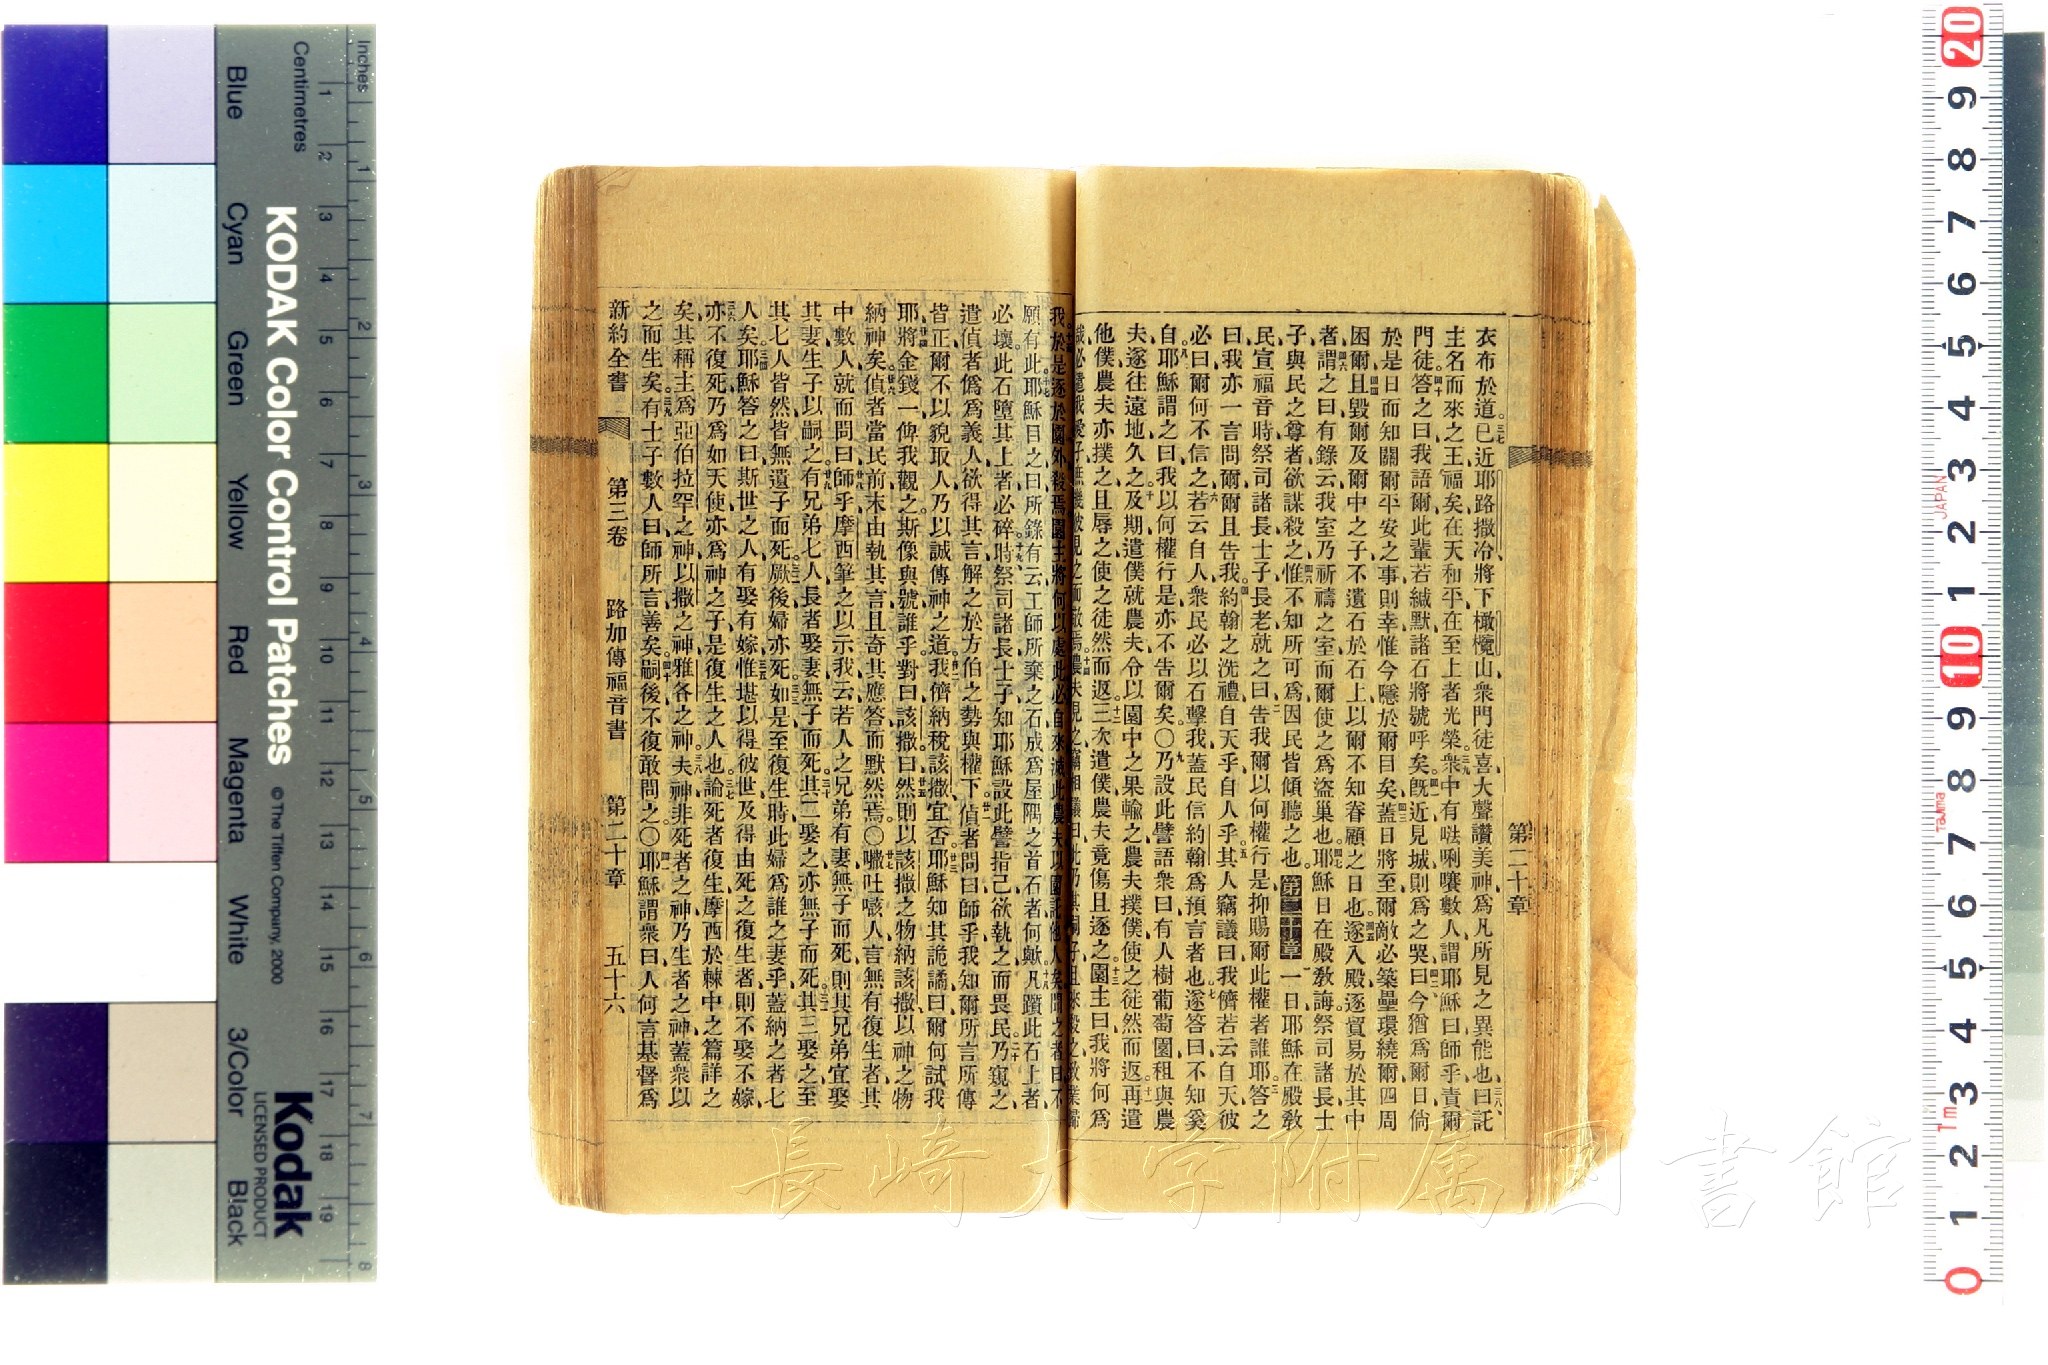 衣布於道已近耶路撒冷將下橄欖山衆門徒喜大聲讚美神爲凡所見之異能也曰託
主名而來之王福矣在天和平在至上者光榮衆中有㕸唎㘔數人謂耶穌曰師乎責爾
門徒答之曰我語爾此輩若緘默諸石將號呼矣旣近見城則爲之哭曰今猶爲爾日倘
於是日而知關爾平安之事則幸惟今隱於爾目矣蓋日將至爾敵必築壘環繞爾四周
困爾且毀爾及爾中之子不遺石於石上以爾不知眷顧之日也遂入殿逐貿易於其中
者謂之曰有錄云我室乃祈禱之室而爾使之爲盜巢也耶穌日在殿敎誨祭司諸長士
子與民之尊者欲謀殺之惟不知所可爲因民皆傾聽之也第二十章一日耶穌在殿敎
民宣福音時祭司諸長士子長老就之曰告我爾以何權行是抑賜爾此權者誰耶答之
曰我亦一言問爾爾且告我約翰之洗禮自天乎自人乎其人竊議曰我儕若云自天彼
必曰爾何不信之若云自人衆民必以石擊我蓋民信約翰爲預言者也遂答曰不知奚
自耶穌謂之曰我以何權行是亦不告爾矣〇乃設此譬語衆曰有人樹葡萄園租與農
夫遂往遠地久之及期遣僕就農夫令以園中之果輸之農夫撲僕使之徒然而返再遣
他僕農夫亦撲之且辱之使之徒然而返三次遣僕農夫竟傷且逐之園主曰我將何爲
第二十章
我於是逐於園外殺焉園主將何以處此必自來滅此農夫以園託他人矣聞之者曰不
願有此耶穌目之曰所錄有云工師所棄之石成爲屋隅之首石者何歟凡躓此石上者
必壞此石墮其上者必碎時祭司諸長士子知耶穌設此譬指己欲執之而畏民乃窺之
遣偵者僞爲義人欲得其言解之於方伯之勢與權下偵者問曰師乎我知爾所言所傳
皆正爾不以貌取人乃以誠傳神之道我儕納稅該撒宜否耶穌知其詭譎曰爾何試我
耶將金錢一俾我觀之斯像與號誰乎對曰該撒曰然則以該撒之物納該撒以神之物
納神矣偵者當民前末由執其言且奇其應答而默然焉〇㘔吐㗒人言無有復生者其
中數人就而問曰師乎摩西筆之以示我云若人之兄弟有妻無子而死則其兄弟宜娶
其妻生子以嗣之有兄弟七人長者娶妻無子而死其二娶之亦無子而死其三娶之至
其七人皆然皆無遺子而死厥後婦亦死如是至復生時此婦爲誰之妻乎蓋納之者七
人矣耶穌答之曰斯世之人有娶有嫁惟堪以得彼世及得由死之復生者則不娶不嫁
亦不復死乃爲如天使亦爲神之子是復生之人也論死者復生摩西於棘中之篇詳之
矣其稱主爲亞伯拉罕之神以撒之神雅各之神夫神非死者之神乃生者之神蓋衆以
之而生矣有士子數人曰師所言善矣嗣後不復敢問之〇耶穌謂衆曰人何言基督爲
新約全書 第三卷 路加傳福音書 第二十章 五十六
Inches
Centimetres
KODAK Color Control Patches
© The Tiffen Company, 2000
Blue Cyan Green Yellow Red Magenta White 3/Color Black
Kodak
LICENSED PRODUCT
1 2 3 4 5 6 7 8 9 10 11 12 13 14 15 16 17 18 19
1 2 3 4 5 6 7 8
20 9 8 7 6 5 4 3 2 1 10 9 8 7 6 5 4 3 2 1 0
JAPAN
Tajima
Tm
長崎大学附属図書館